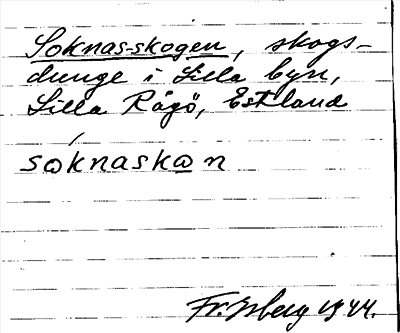 Soknas-skogen, skogs-
dunge i Lilla byn,
Lilla Rågö, Estland
sɷknaskɷn
Fr. Isberg 1944.